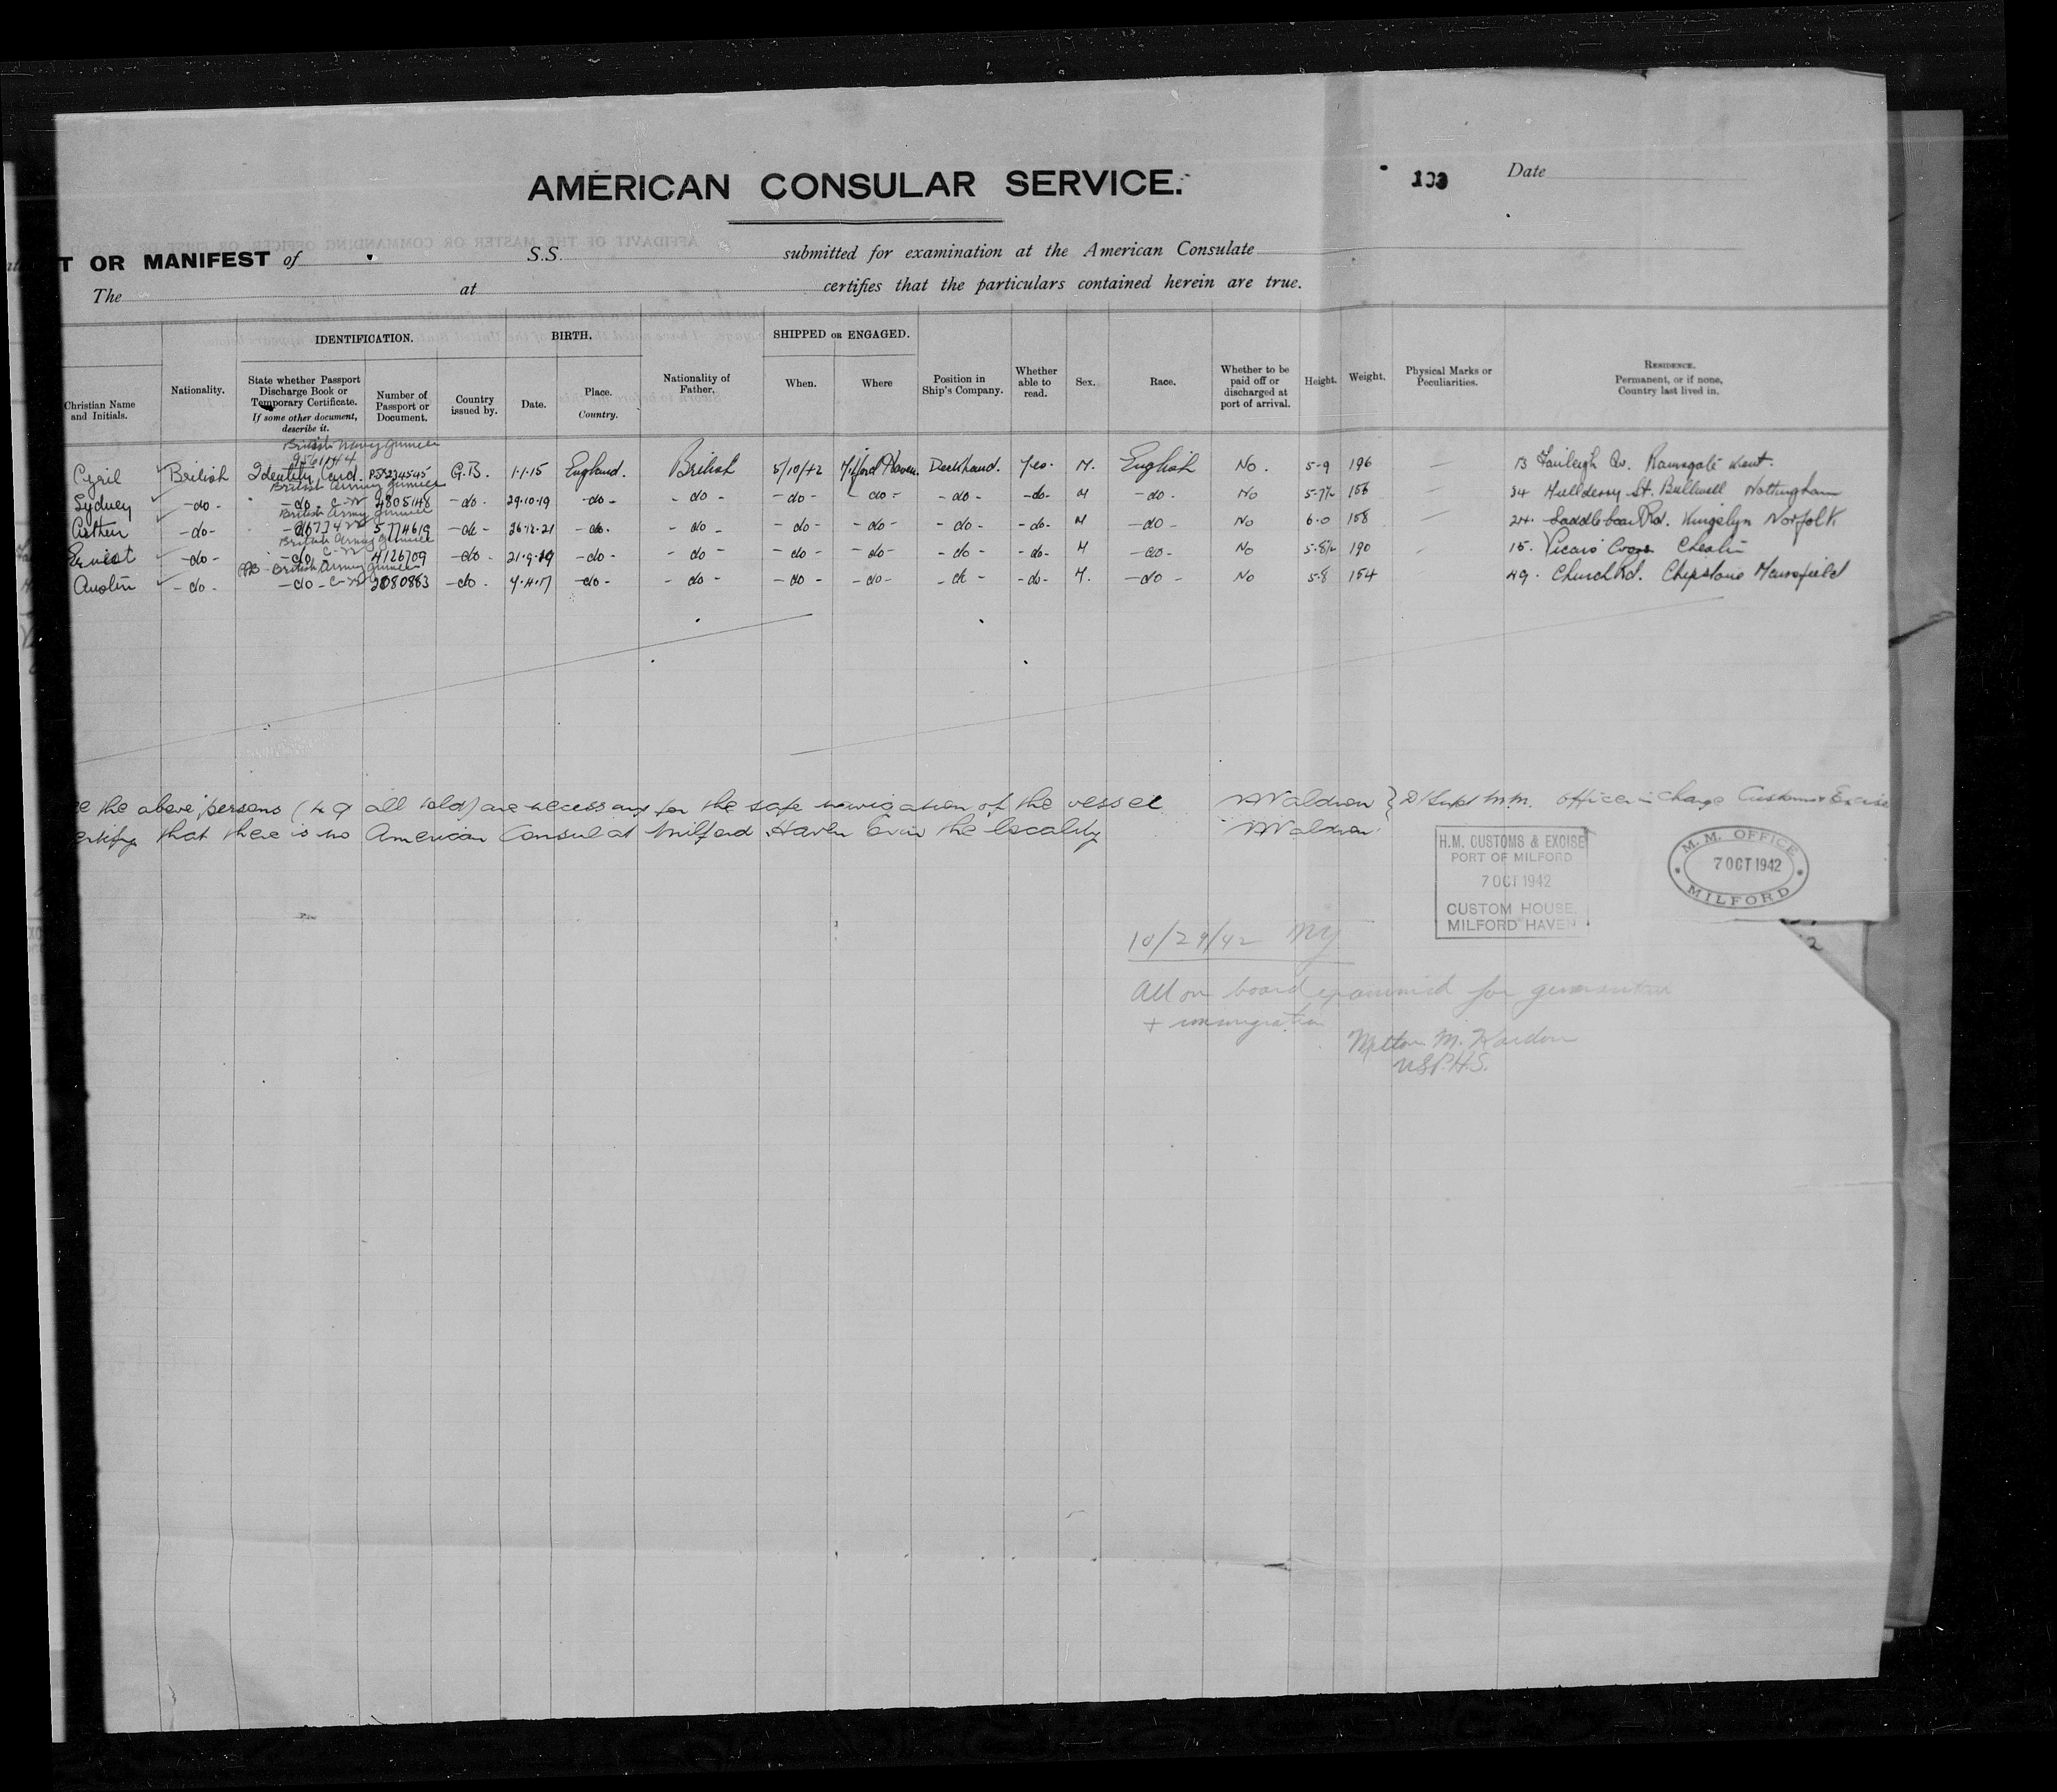 AMERICAN CONSULAR SERVICE.
103
Date
T OR MANIFEST of S.S. submitted for examination at the American Consulate
The at certifies that the particulars contained herein are true.
IDENTIFICATION. BIRTH. SHIPPED OR ENGAGED.
Christian Name and Initials.
Nationality.
State whether Passport Discharge Book or Temporary Certificate. If some other document, describe it.
Number of Passport or Document.
Country issued by.
Date.
Place. Country.
Nationality of Father.
When.
Where
Position in Ship's Company.
Whether able to read.
Sex.
Race.
Whether to be paid off or discharged at port of arrival.
Height.
Weight.
Physical Marks or Peculiarities.
RESIDENCE. Permanent, or if none, Country last lived in.
British Navy Gunner
Cyril British Identity Card. G.B. 1.1.15 England. British 5/10/42 Milford Haven. Deckhand. Yes. M. English No. 5-9 196 — 13 Fairleigh Av. Ramsgate Kent.
British Army Gunner
Sydney -do- -do- 4805148 -do- 29.10.19 -do- -do- -do- -do- -do- -do- M -do- No 5-7½ 156 — 34 St. Bullwell Nottingham
British Army Gunner
Arthur -do- -do- 5774619 -do- 26.12.21 -do- -do- -do- -do- -do- -do- M -do- No 6.0 158 — 24. Saddlebow Rd. Kingslyn Norfolk
British Army Gunner
Ernest -do- -do- 4126709 -do- 21.9.19 -do- -do- -do- -do- -do- -do- M -do- No 5.8½ 190 15. Vicars Cross
British Army Gunner
Austin -do- -do- 2080863 -do- -do- -do- -do- -do- -do- -do- M. -do- No 5.8 154 49. Church Rd. Clipstone Mansfield
the above persons (49 all told) are necessary for the safe navigation of the vessel Waldron } D/Supt M.M. officer in Charge Customs & Excise
certify that there is no American Consul at Milford Haven or in the locality Waldron
H.M. CUSTOMS & EXCISE
PORT OF MILFORD
7 OCT 1942
CUSTOM HOUSE
MILFORD HAVEN
M. M. OFFICE
7 OCT 1942
MILFORD
10/29/42 NY
All on board examined for quarantine
+ immigration
Milton M.
USPHS.